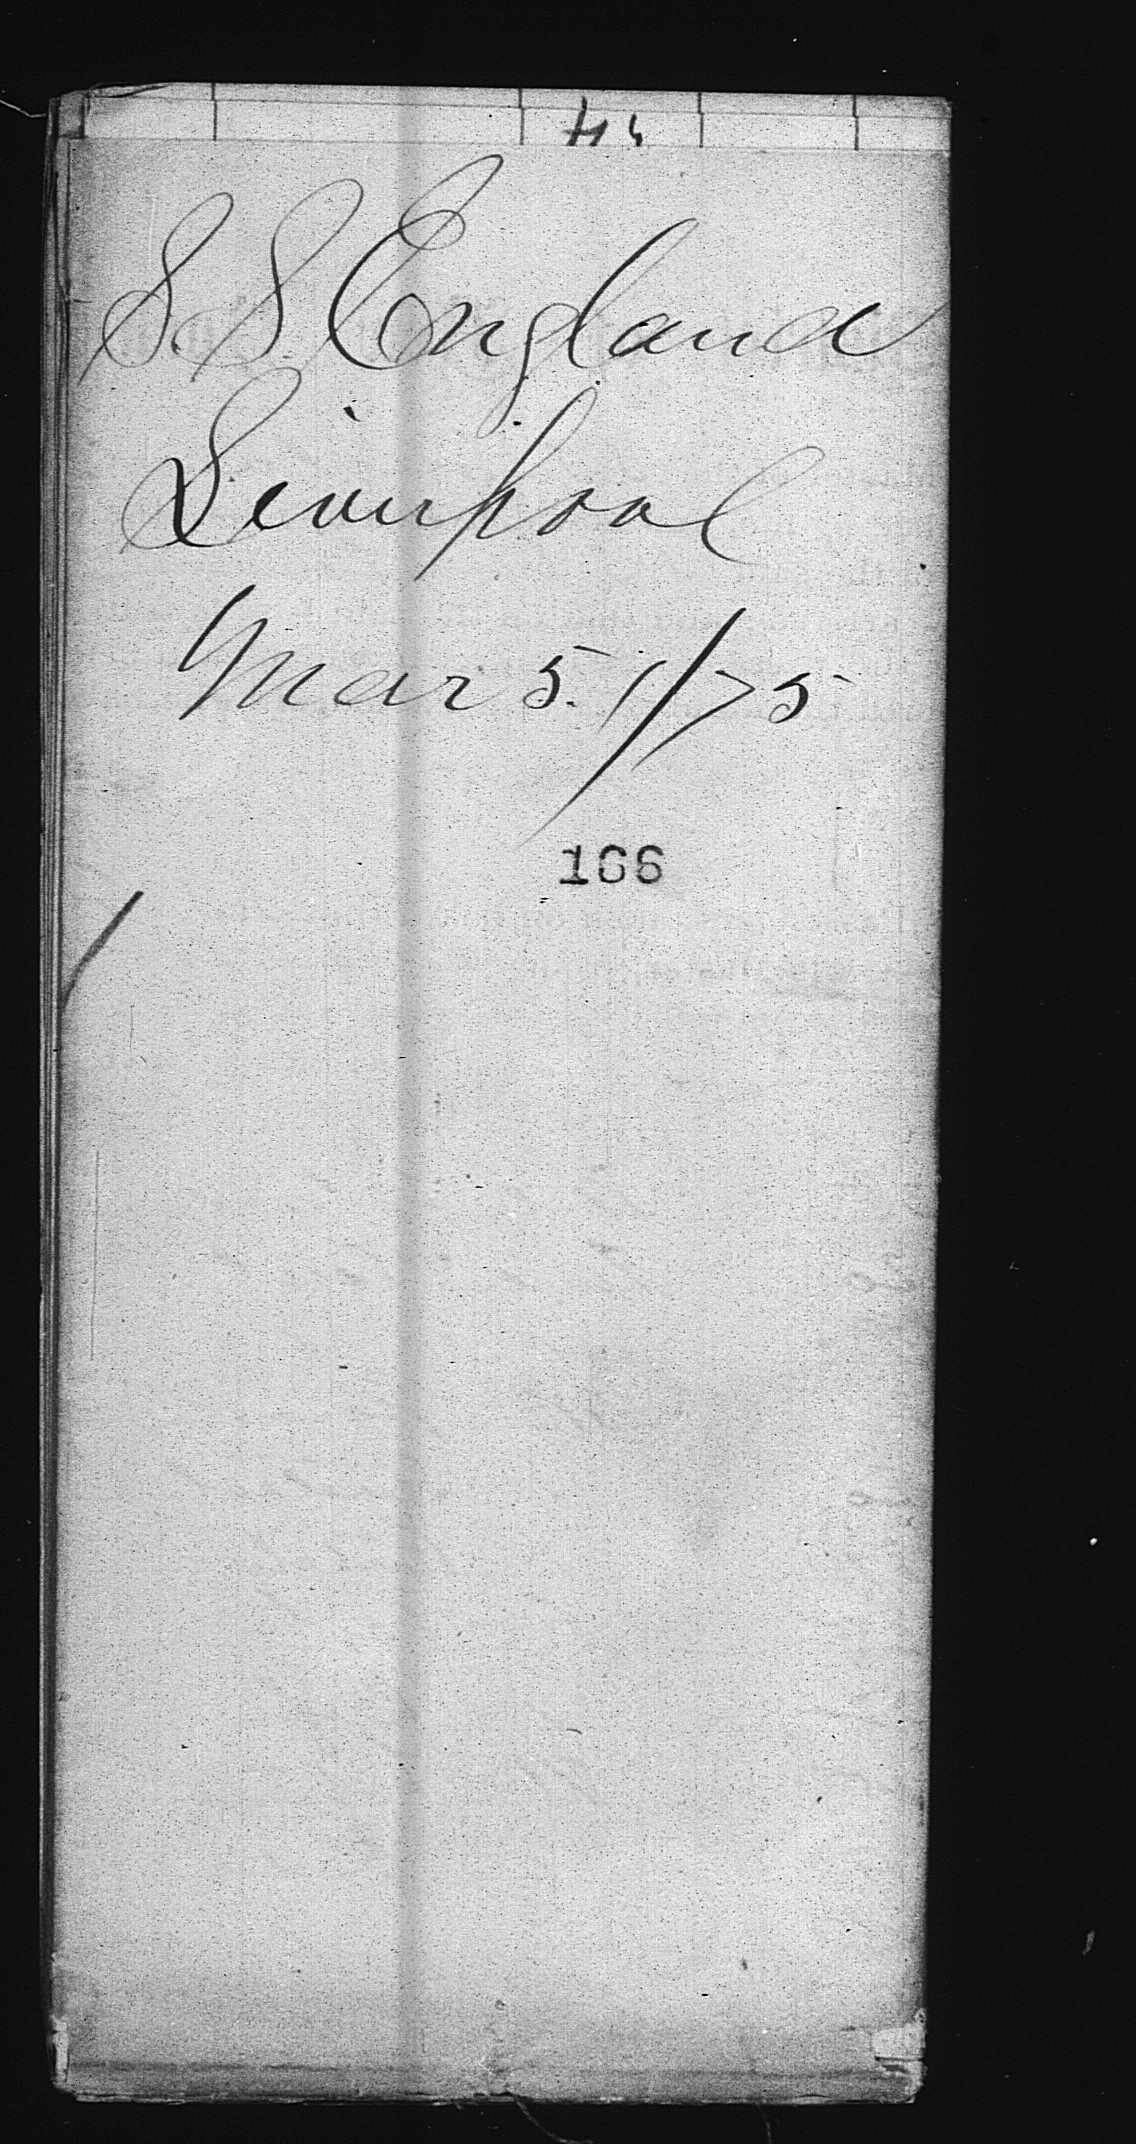 S.S. England
Liverpool
Mar 5. /75
166